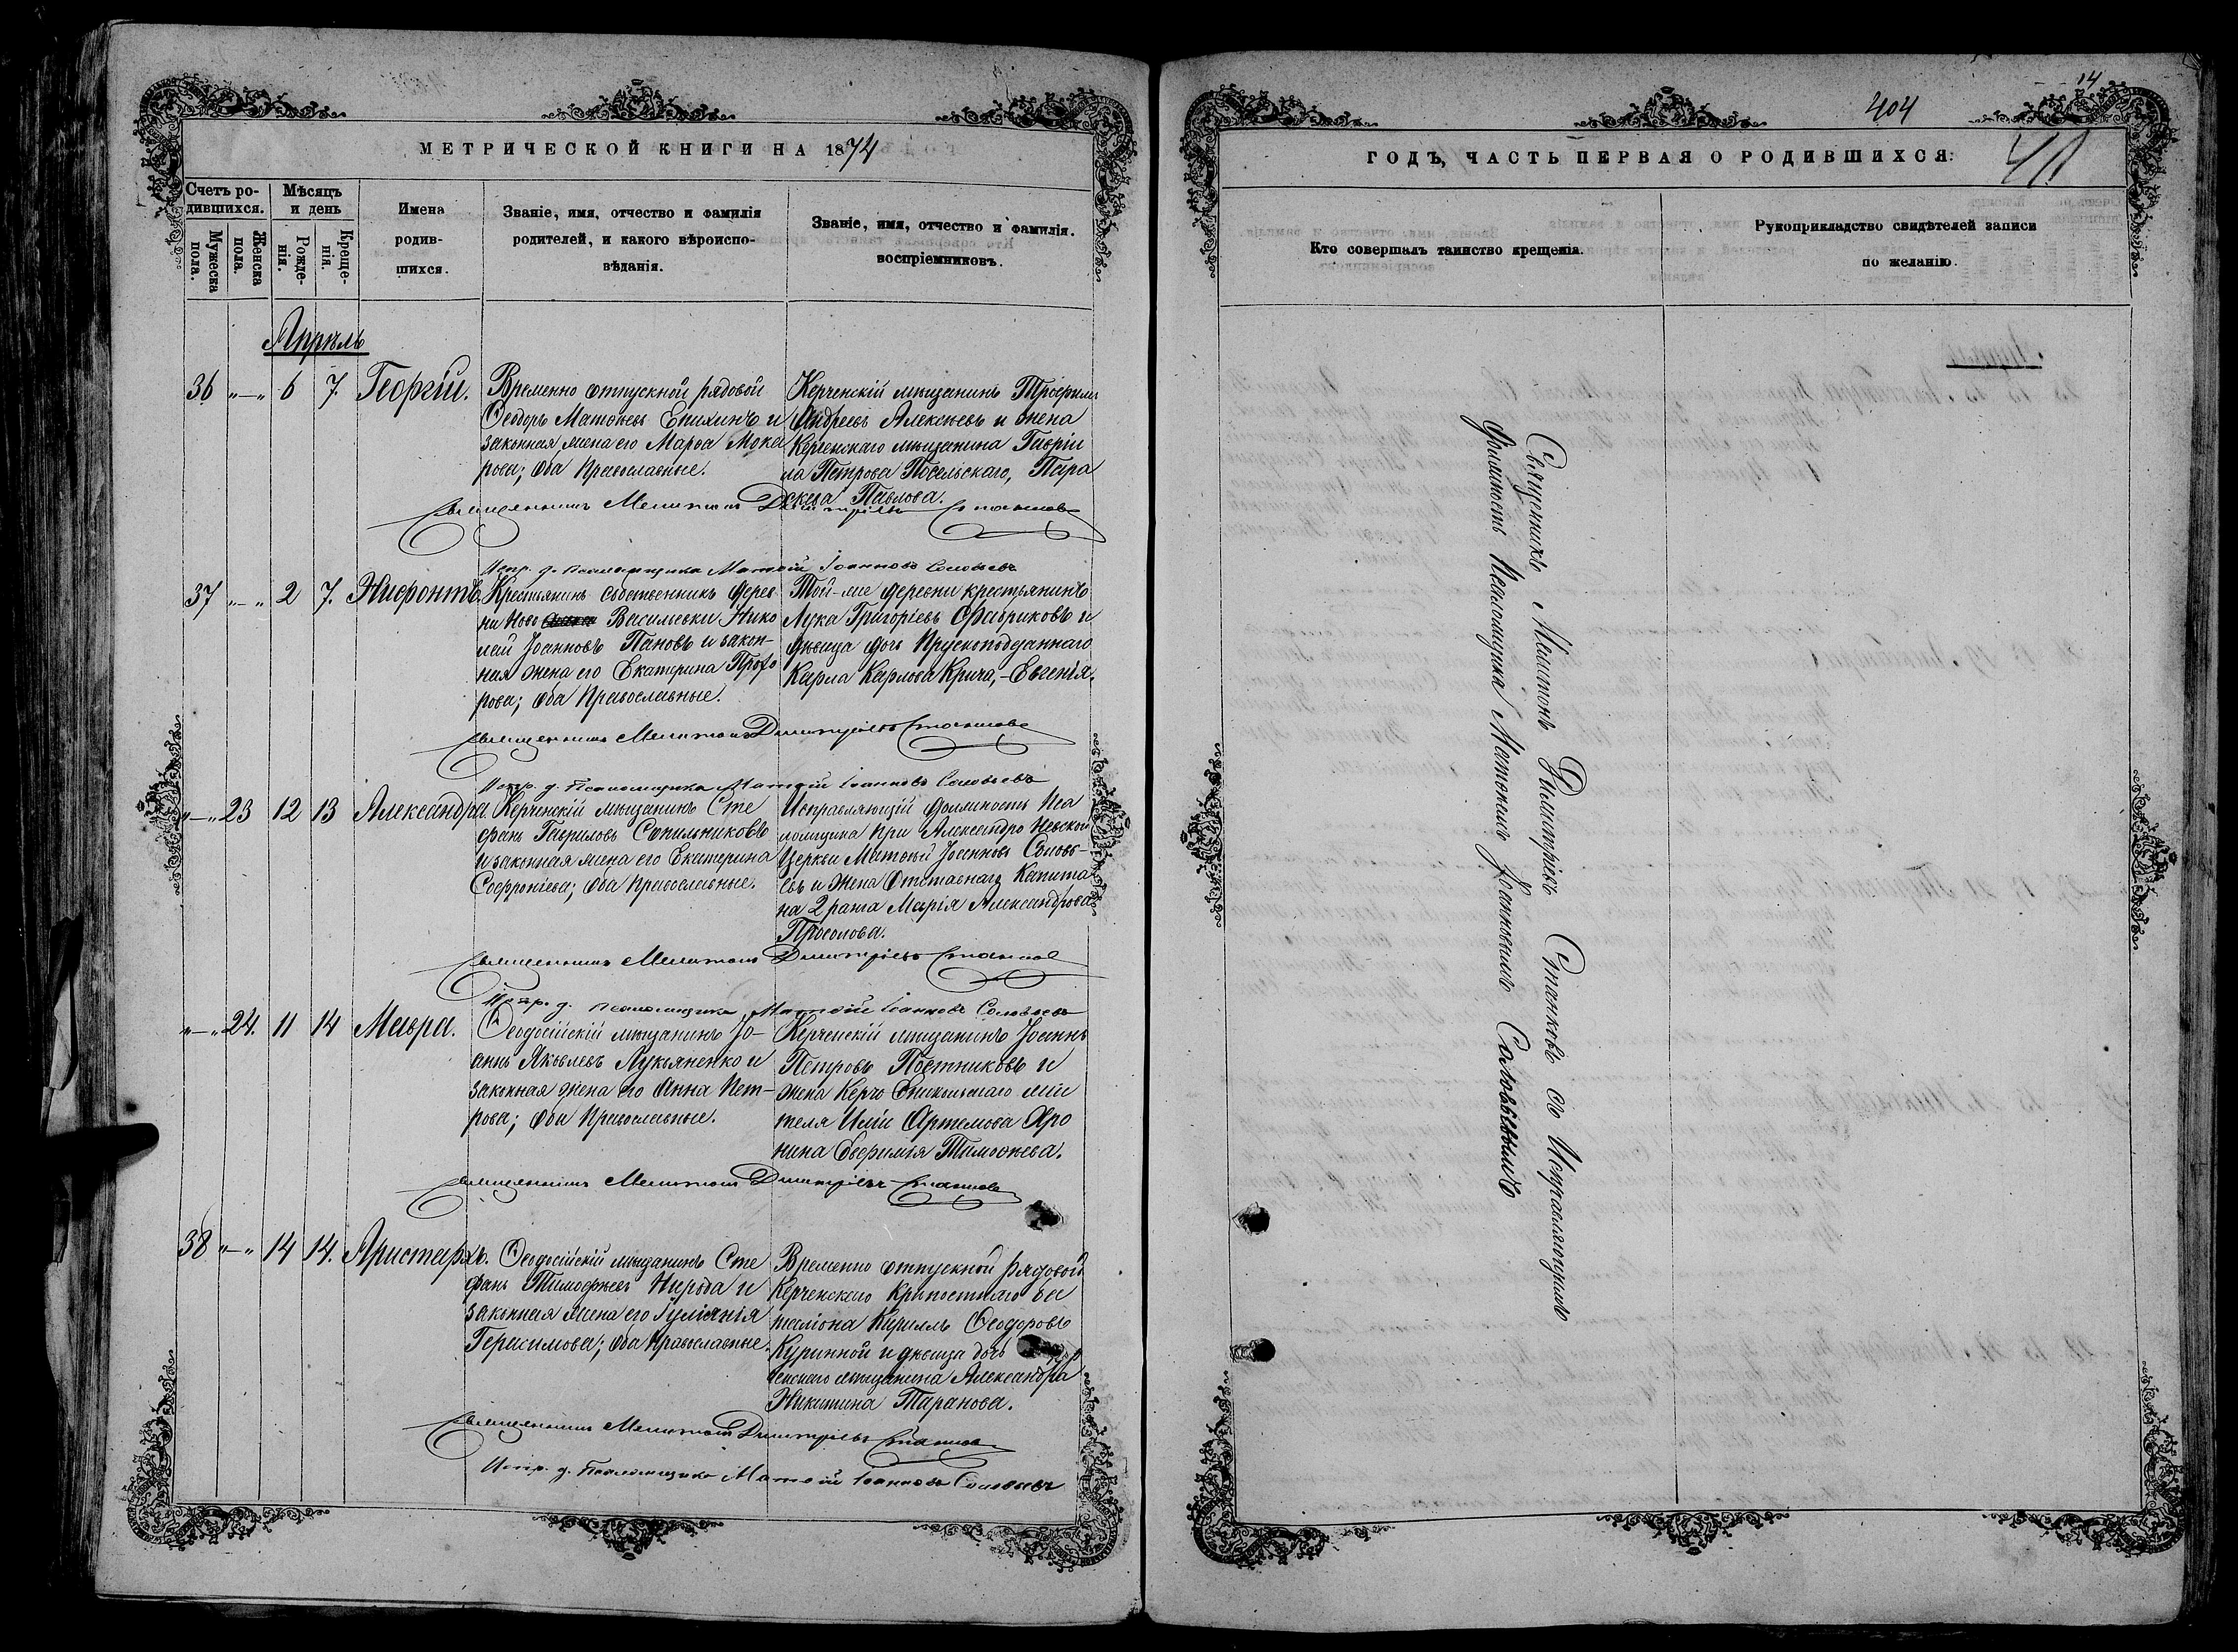 МЕТРИЧЕСКОЙ КНИГИ НА 1874
Счетъ ро-
дившихся.
Мужеска
пола.
Женска
пола.
Мѣсяцъ
и день
Рожде-
нія.
Креще-
нія.
Имена
родив-
шихся.
Званіе, имя, отчество и фамилія
родителей, и какого вѣроиспо-
вѣданія.
Званіе, имя, отчество и фамилія.
воспріемниковъ.
Апрѣль
36 „—„ 6 7. Георгій.
Временно отпускной рядовой
Ѳеодоръ Матѳеевъ Епихинъ и
законная жена его Марѳа Мока
рова; оба Православные.
Керченскій мѣщанинъ Трофимъ
Андреевъ Алексѣевъ и жена
Керченскаго мѣщанина Гаврiи
ла Петрова Посельскаго, Пара
скева Павлова.
Священникъ Мелитонъ Димитріевъ Станковъ
Испр. д. псаломщика Матѳей Іоанновъ Соловьевъ
37 „—„ 2 7. Нифонтъ.
Крестьянинъ собственникъ дерев
ни Ново Васильевки Нико
лай Іоанновъ Пановъ и закон-
ная жена его Екатерина Прохо
рова; оба Православные.
Той-же деревни крестьянинъ
Лука Григоріевъ Фабриковъ и
дѣвица дочь Прускоподданнаго
Карла Карлова Крича, - Евгенія.
Священникъ Мелитонъ Димитріевъ Станковъ
Испр. д. Псаломщика Матѳей Іоанновъ Соловьевъ
„—„ 23 12 13 Александра.
Керченскій мѣщанинъ Сте
фанъ Гавриловъ Сопильниковъ
и законная жена его Екатерина
Софроніева; оба Православные.
Исправляющій должность Пса
ломщика при Александро Невской
Церкви Матѳей Іоанновъ Соловь-
евъ и жена Отставнаго Капита
на 2 ранга Марія Александрова
Просолова.
Священникъ Мелитонъ Димитріевъ Станковъ
Испр. д. псаломщика Матѳей Іоанновъ Соловьевъ
„—„ 24. 11 14 Мавра.
Ѳеодосійскій мѣщанинъ Іо-
аннъ Яковлевъ Лукьяненко и
законная жена его Анна Пет-
рова; оба Православные.
Керченскій мѣщанинъ Іоаннъ
Петровъ Постниковъ и
жена Керчь Еникольскаго жи
теля Иліи Артемова Хро
нина Евфимія Тимоѳеева.
Священникъ Мелитонъ Димитріевъ Станковъ
38 „—„ 14 14. Аристархъ.
Ѳеодосійскій мѣщанинъ Сте
фанъ Тимофеевъ Нирода и
законная жена его Іуліанія
Герасимова; оба Православные.
Временно отпускной рядовой
Керченскаго Крѣпостнаго ба
таліона Кириллъ Ѳеодоровъ
Куринной и дѣвица дочь
ченскаго мѣщанина Александра
Никитина Таранова.
Священникъ Мелитонъ Димитріевъ Станковъ
Испр. д. Псаломщика Матѳей Іоанновъ Соловьевъ
14
404
411
ГОДЪ, ЧАСТЬ ПЕРВАЯ О РОДИВШИХСЯ:
Кто совершалъ таинство крещенія.
Рукоприкладство свидѣтелей записи
по желанію.
Священникъ Мелитонъ Димитріевъ Станковъ съ Исправляющимъ
должность Псаломщика Матѳеемъ Іоанновымъ Соловьевымъ